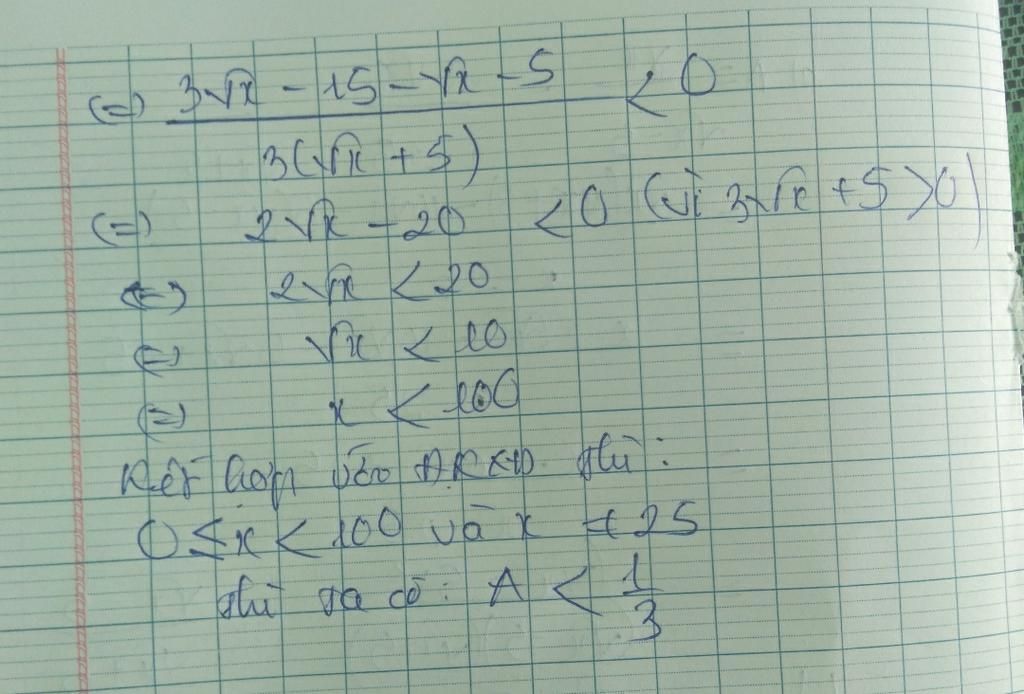 (=) 3√x - 15 - √x - 5 < 0
3(√x + 5)
(=) 2√x - 20 < 0 (vì 3√x + 5 > 0)
(=) 2√x < 20
(=) √x < 10
(=) x < 100
Kết hợp vào ĐKXĐ thì:
0 ≤ x < 100 và x ≠ 25
thì ta có: A < 1/3